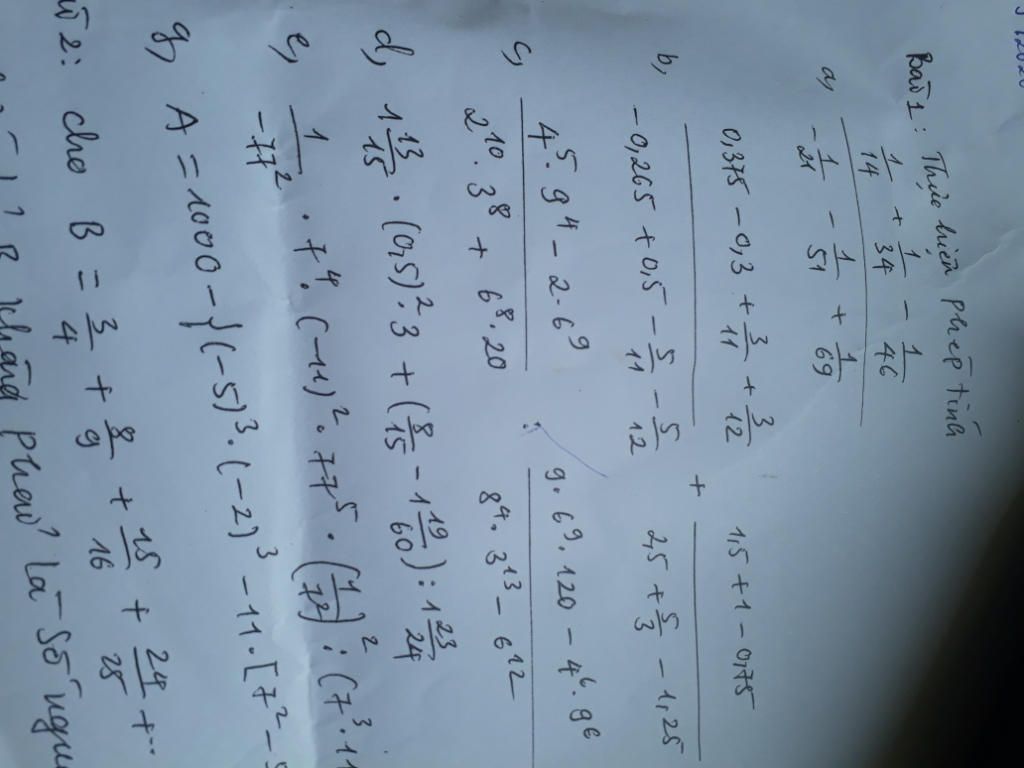 Bài 1: Thực hiện phép tính
a, (1/14 + 1/34 - 1/46) / (-1/21 - 1/51 + 1/69)
b, (0,375 - 0,3 + 3/11 + 3/12) / (-0,265 + 0,5 - 5/11 - 5/12) + (1,5 + 1 - 0,75) / (2,5 + 5/3 - 1,25)
c, (4^5 . 9^4 - 2 . 6^9) / (2^10 . 3^8 + 6^8 . 20) : (9 . 6^9 . 120 - 4^6 . 9^6) / (8^4 . 3^13 - 6^12)
d, 1 13/15 . (0,5)^2 . 3 + (8/15 - 1 19/60) : 1 23/24
e, 1/-77^2 . 7^4 . (-11)^2 . 77^5 . (1/7^2)^2 : (7^3 . 11
g, A = 1000 - {(-5)^3 . (-2)^3 - 11 . [7^2 -
2: cho B = 3/4 + 8/9 + 15/16 + 24/25 + ...
B không phải là số nguy